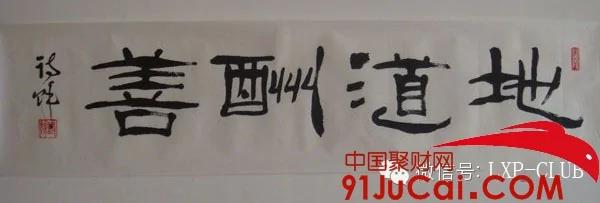 地道酬善
微信号: LXP-CLUB
中国聚财网
91JUCai.com